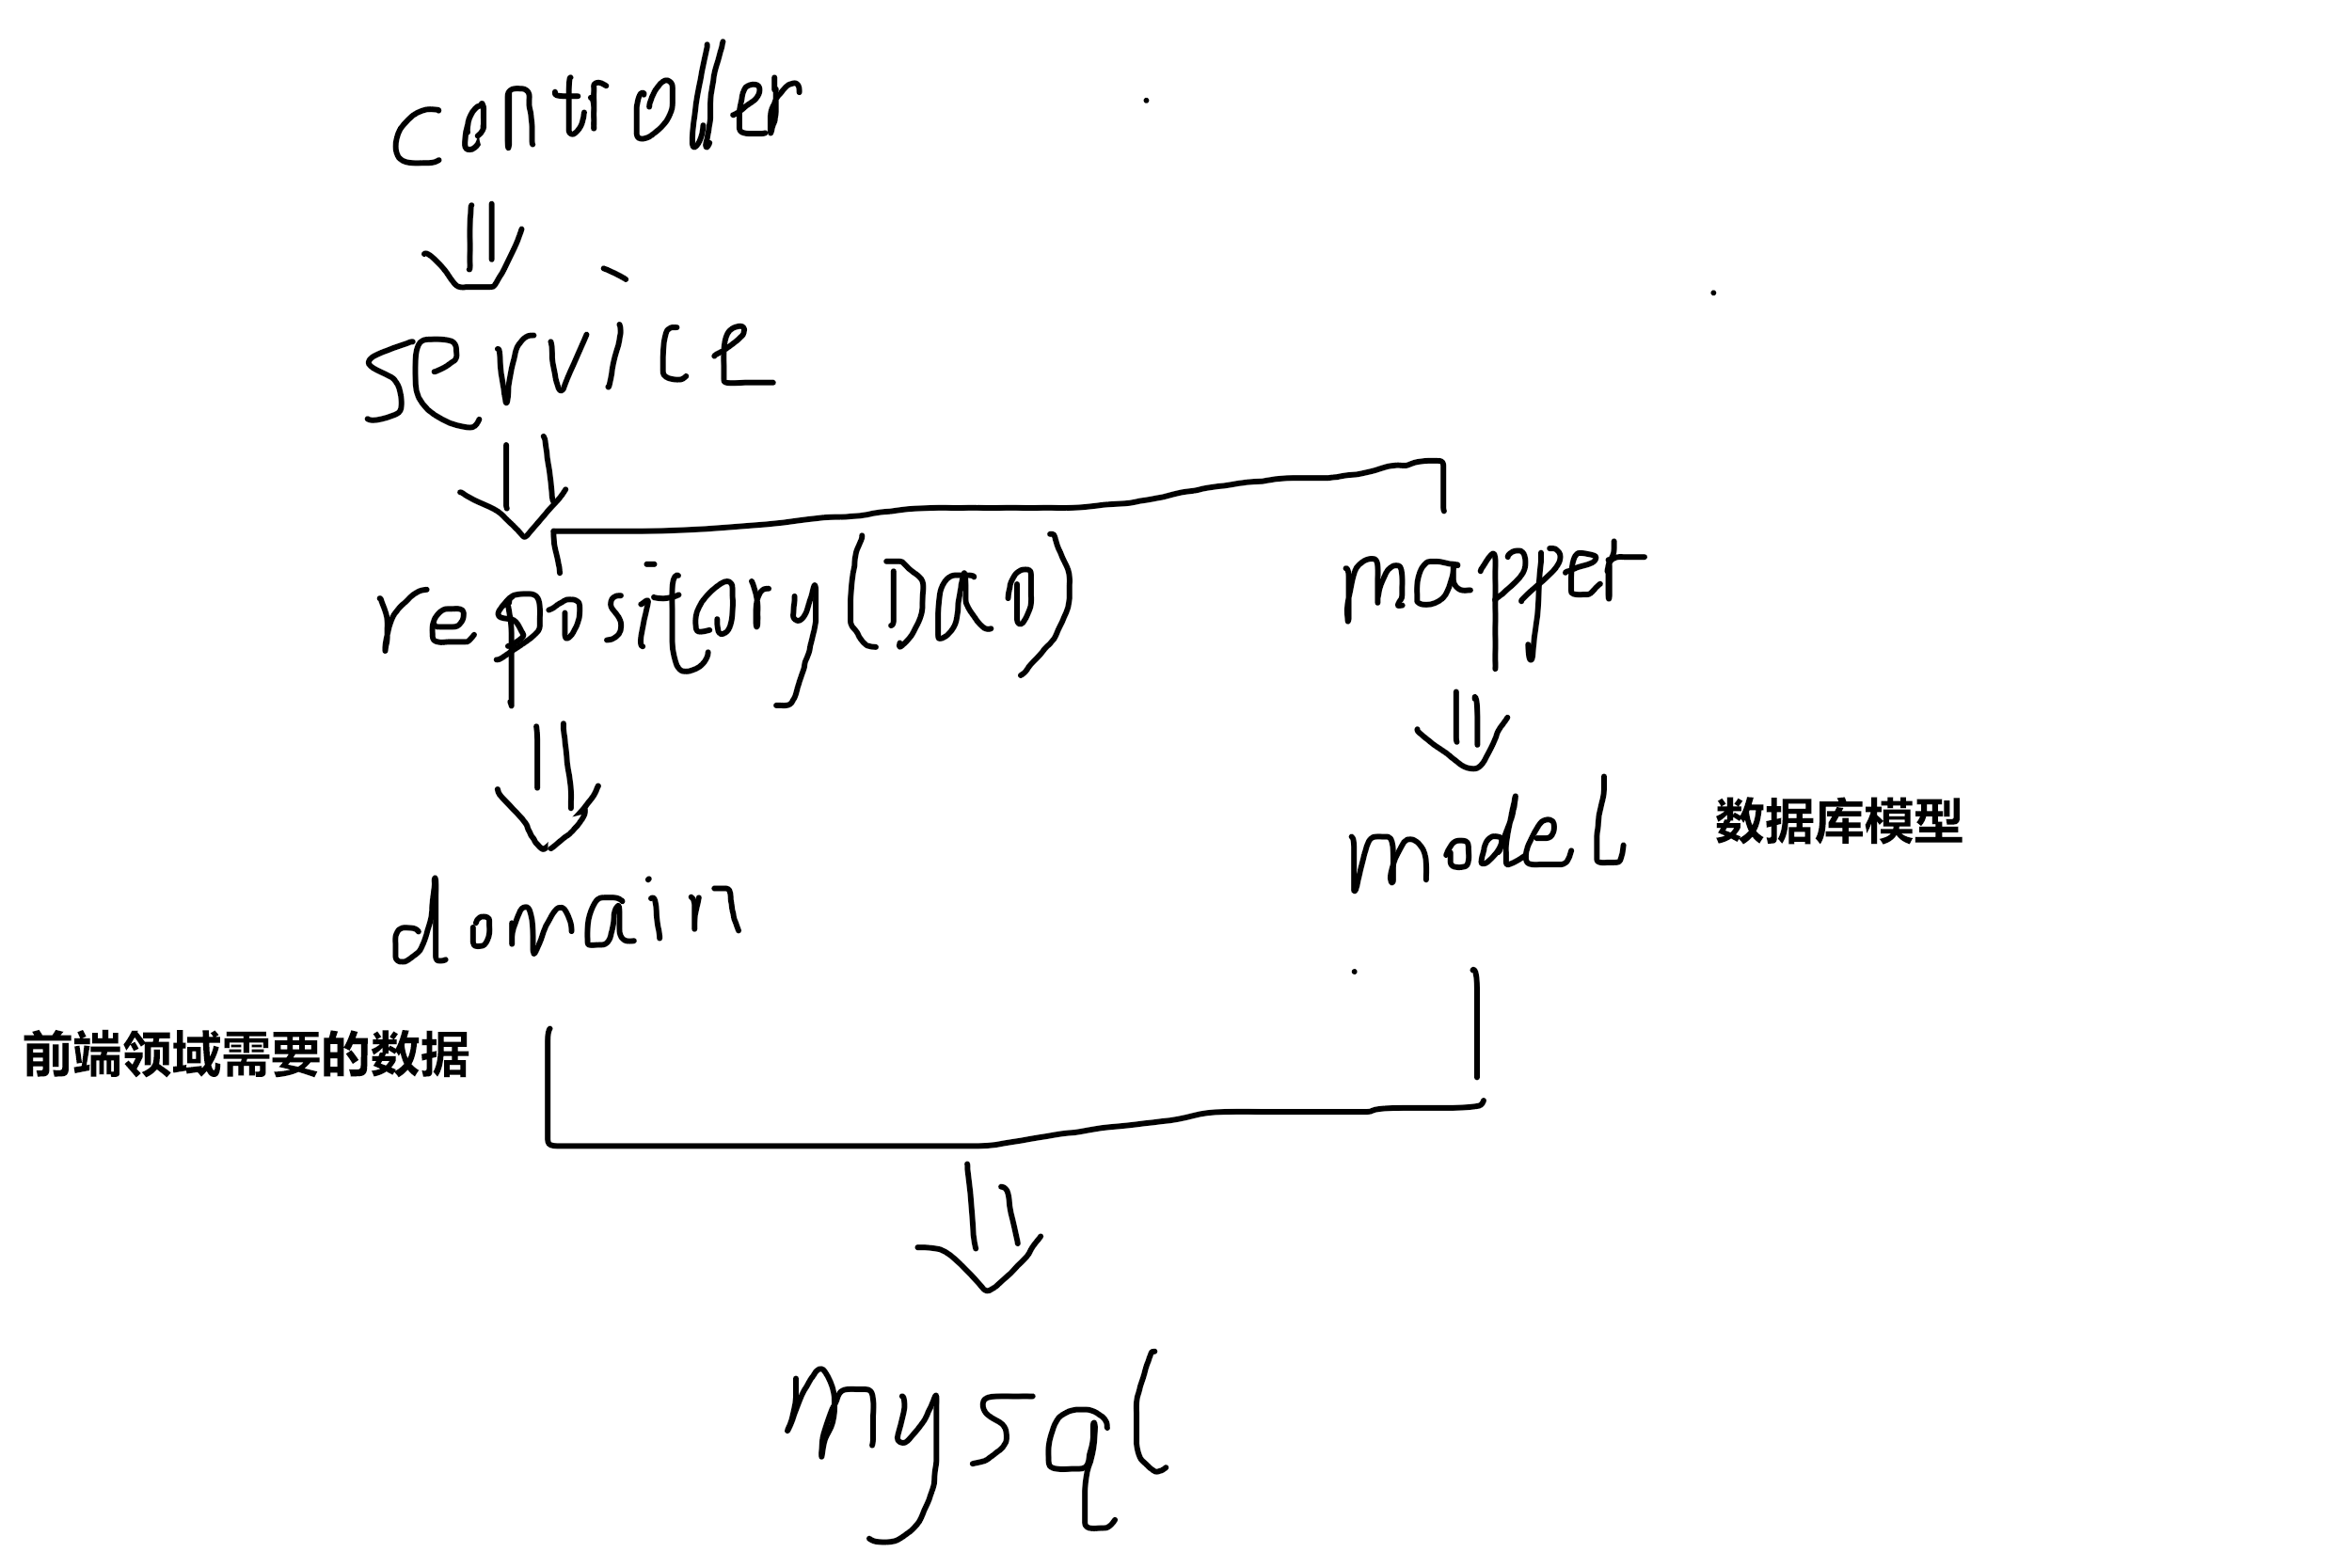 controller
service
repository(DAO)
mapper
model
数据库类型
domain
前端领域需要的数据
mysql